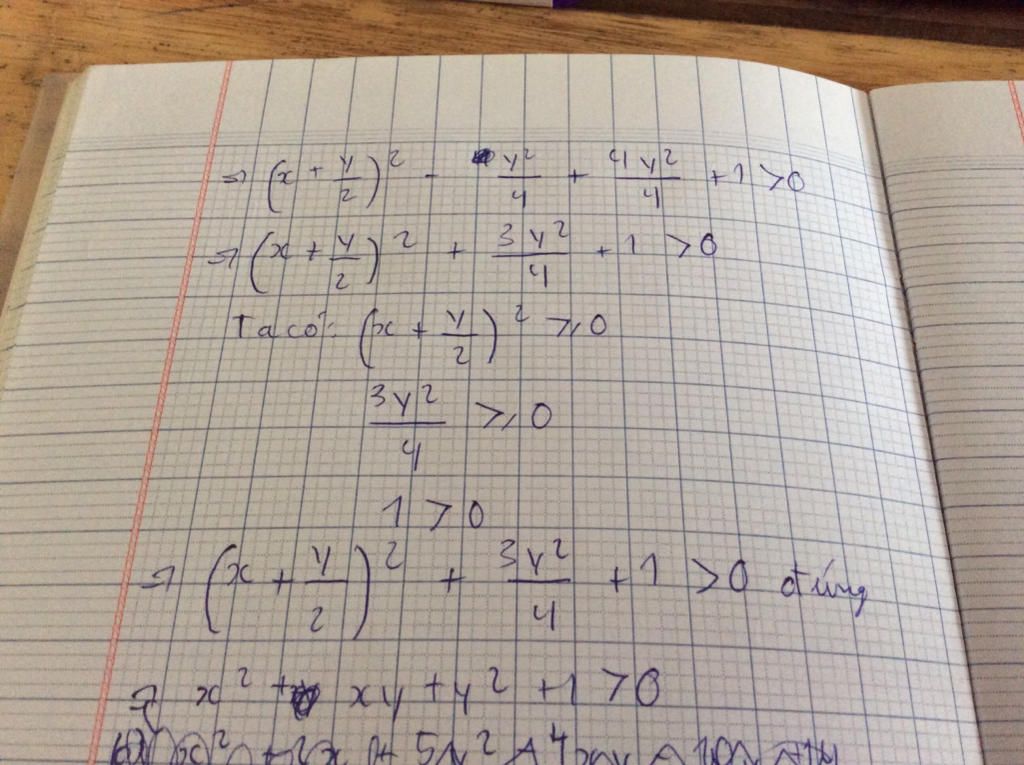 => (x + y/2)² - y²/4 + 4y²/4 + 1 > 0
=> (x + y/2)² + 3y²/4 + 1 > 0
Ta có: (x + y/2)² ≥ 0
3y²/4 ≥ 0
1 > 0
=> (x + y/2)² + 3y²/4 + 1 > 0 đúng
=> x² + xy + y² + 1 > 0